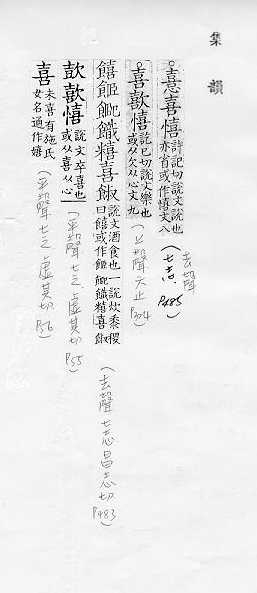 集韻
○憙喜憘 許記切說文說也
亦省或作憘文八
(去聲
七志 P485)
○喜歖憘 許已切說文樂也
或从欠从心文九
(上聲六止 P324)
饎 糦喜 說文酒食也一說炊黍稷
曰饎或作
(去聲七志昌志切 P483)
歖憘 說文卒喜也
或从喜从心
(平聲七之虛其切 P55)
喜 末喜有施氏
女名通作嬉
(平聲七之虛其切 P56)